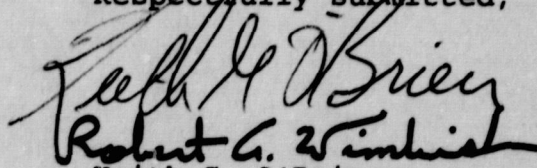 Respectfully submitted,
Keith G. O'Brien
Robert G. Wimbish